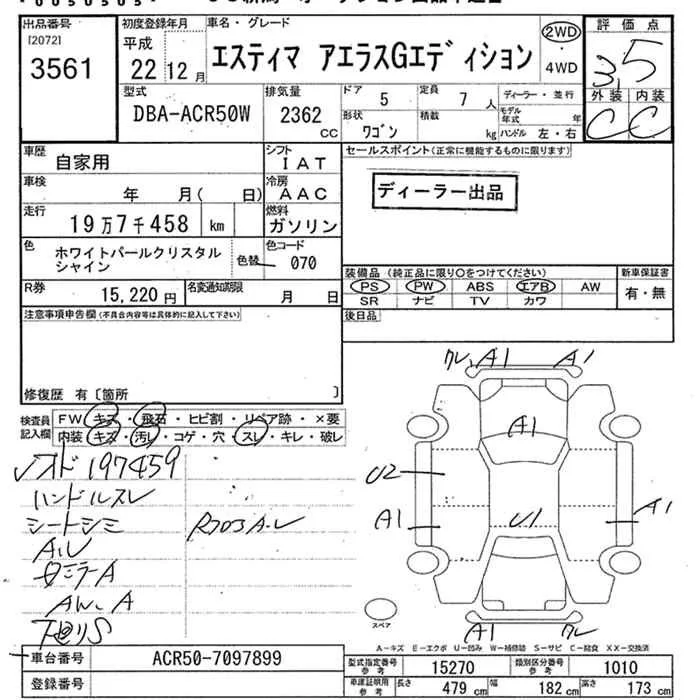 出品番号 初度登録年月 車名・グレード 評価点
[2072] 平成 エスティマ アエラスGエディション 2WD 3.5
3561 22 12月 ・4WD 外装 内装
型式 排気量 ドア 5 定員 7人 ディーラー・並行 C C
DBA-ACR50W 2362 cc 形状 ワゴン 積載 kg モデル年式 年
ハンドル 左・右
車歴 自家用 シフト IAT セールスポイント(正常に機能するものに限ります)
車検 年 月( 日) 冷房 AAC ディーラー出品
走行 19万7千458 km 燃料 ガソリン
色 ホワイトパールクリスタル 色替 色コード 070
シャイン
装備品(純正品に限り○をつけてください) 新車保証書
R券 15,220円 名変通知期限 月 日 PS PW ABS エアB AW 有・無
SR ナビ TV カワ
注意事項申告欄(不具合内容等は具体的に記入して下さい) 後日品
修復歴 有〔箇所 〕
クレ, A1 A1
検査員 FW キズ・飛石・ヒビ割・リペア跡・×要
記入欄 内装 キズ・汚レ・コゲ・穴・スレ・キレ・破レ
A1
オド 197459 U2
ハンドルスレ A1 U1 A1
シートシミ
A.U
スペア
AW.A
下廻りS A1 クレ
A-キズ E-エクボ U-凹み W-補修跡 S-サビ C-腐食 XX-交換済
車台番号 ACR50-7097899 型式指定番号 参考 15270 類別区分番号 参考 1010
登録番号 車庫証明用 参考 長さ 479cm 幅 182cm 高さ 173cm